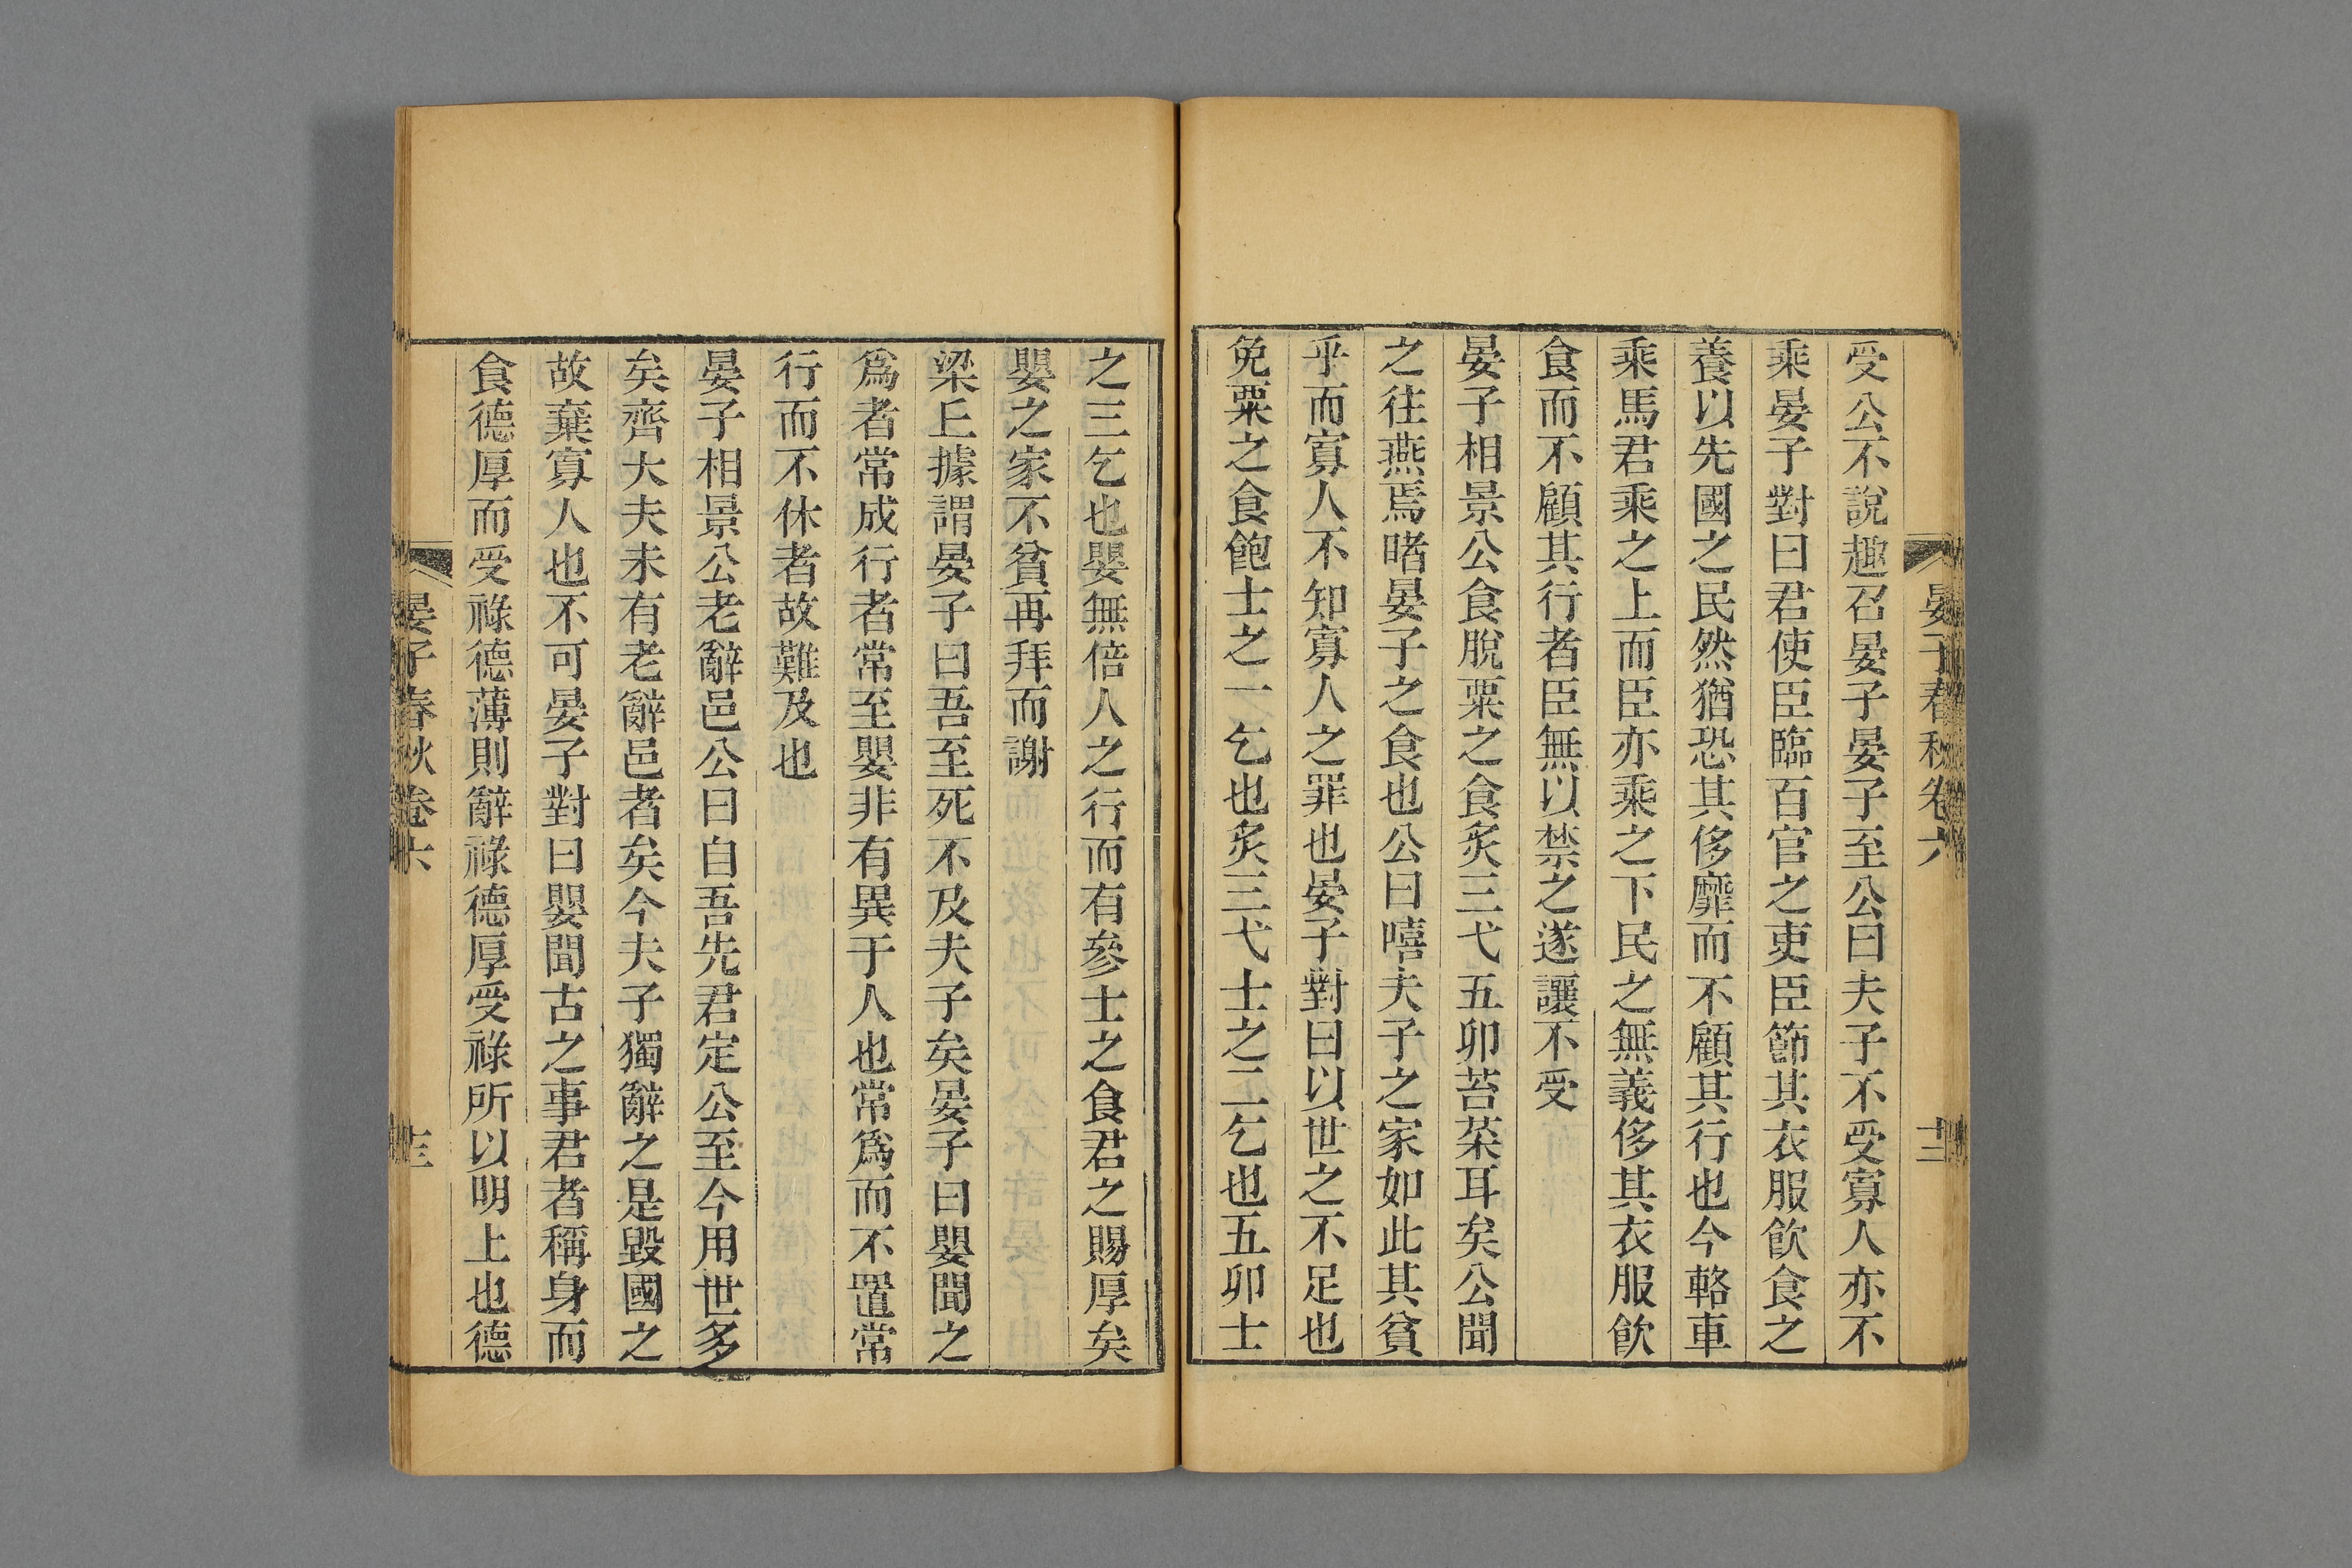 晏子春秋卷六
十二
受公不說趣召晏子晏子至公曰夫子不受寡人亦不
乘晏子對曰君使臣臨百官之吏臣節其衣服飮食之
養以先國之民然猶恐其侈靡而不顧其行也今輅車
乘馬君乘之上而臣亦乘之下民之無義侈其衣服飮
食而不顧其行者臣無以禁之遂讓不受
晏子相景公食脫粟之食炙三弋五卯苔菜耳矣公聞
之往燕焉睹晏子之食也公曰嘻夫子之家如此其貧
乎而寡人不知寡人之罪也晏子對曰以世之不足也
免粟之食飽士之一乞也炙三弋士之二乞也五卯士
之三乞也嬰無倍人之行而有參士之食君之賜厚矣
嬰之家不貧再拜而謝
梁丘據謂晏子曰吾至死不及夫子矣晏子曰嬰聞之
爲者常成行者常至嬰非有異于人也常爲而不置常
行而不休者故難及也
晏子相景公老辭邑公曰自吾先君定公至今用世多
矣齊大夫未有老辭邑者矣今夫子獨辭之是毀國之
故棄寡人也不可晏子對曰嬰聞古之事君者稱身而
食德厚而受祿德薄則辭祿德厚受祿所以明上也德
晏子春秋卷六
十三